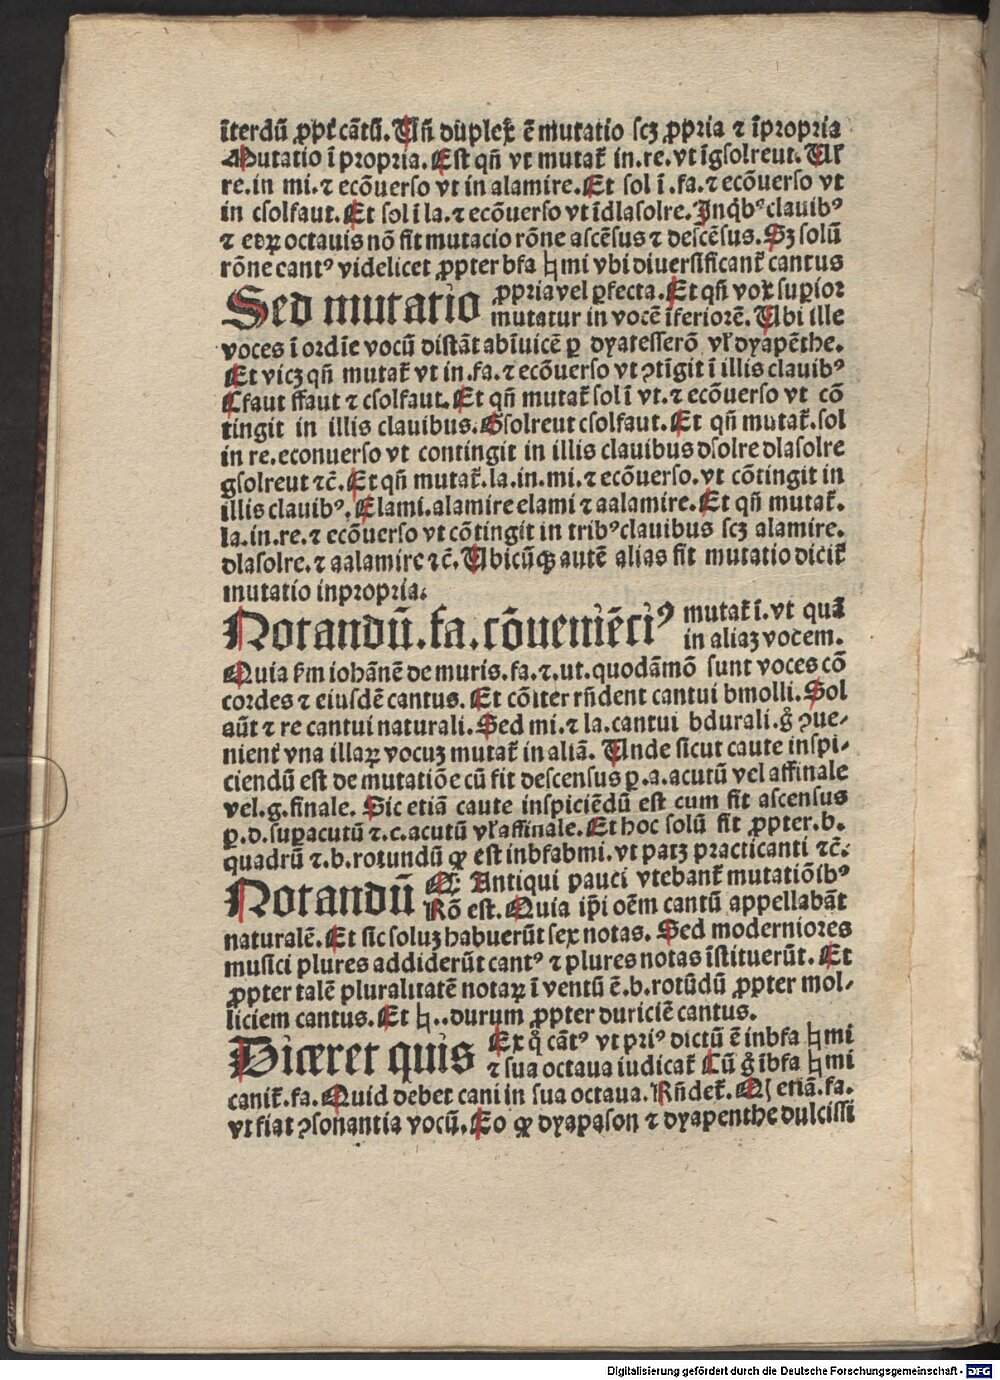 īterdū ꝓpt̄ cātū. Un̄ duplex̄ ē mutatio scꝫ ꝓpria ⁊ īpropria
Mutatio ī propria. Est qn̄ vt mutat᷑ in.re. vt īgsolreut. Ul᷑
re.in mi.⁊ ecōuerso vt in alamire. Et sol ī .fa.⁊ ecōuerso vt
in csolfaut. Et sol ī la.⁊ ecōuerso vt īdlasolre. Inqͥbꝰ clauibꝰ
⁊ eoꝝ octauis nō fit mutacio rōne ascēsus ⁊ descēsus. Sꝫ solū
rōne cantꝰ videlicet ꝓpter bfa ♮mi vbi diuersificant᷑ cantus
Sed mutatio ꝓpria vel ꝑfecta. Et qn̄ vox suꝑior
mutatur in vocē īferiorē. Ubi ille
voces ī ordīe vocū distāt abīuicē ꝑ dyatesserō vl᷑ dyapēthe.
Et vicꝫ qn̄ mutat᷑ vt in.fa.⁊ ecōuerso vt ↄtīgit ī illis clauibꝰ
Cfaut ffaut ⁊ csolfaut. Et qn̄ mutat᷑ sol ī vt.⁊ ecōuerso vt cō
tingit in illis clauibus. Gsolreut csolfaut. Et qn̄ mutat᷑.sol
in re.econuerso vt contingit in illis clauibus dsolre dlasolre
gsolreut ⁊c̄. Et qn̄ mutat᷑.la.in.mi.⁊ ecōuerso.vt cōtingit in
illis clauibꝰ. Elami.alamire elami ⁊ aalamire. Et qn̄ mutat᷑.
la.in.re.⁊ ecōuerso vt cōtingit in tribꝰ clauibus scꝫ alamire.
dlasolre.⁊ aalamire ⁊c̄. Ubicūqꝫ autē alias fit mutatio dicit᷑
mutatio inpropria.
Notandū.fa.cōueniēciꝰ mutat᷑ ī.vt quā
in aliaꝫ vocem.
Quia ẜm iohānē de muris.fa.⁊.ut.quodāmō sunt voces cō
cordes ⁊ eiusdē cantus. Et cōiter rn̄dent cantui bmolli. Sol
aūt ⁊ re cantui naturali. Sed mi.⁊ la.cantui bdurali.gͦ ↄue⸗
nient᷑ vna illaꝝ vocuꝫ mutat᷑ in aliā. Unde sicut caute inspi⸗
ciendū est de mutatiōe cū fit descensus ꝑ.a.acutū vel affinale
vel.g.finale. Sic etiā caute inspiciēdū est cum fit ascensus
ꝑ.d.suꝑacutū ⁊.c.acutū vl᷑ affinale. Et hoc solū fit ꝓpter.b.
quadrū ⁊.b.rotundū ꝙ est inbfabmi.vt patꝫ practicanti ⁊c̄.
Notandū Antiqui pauci vtebant᷑ mutatiōibꝰ
Rō est. Quia ip̄i oēm cantū appellabāt
naturalē. Et sic soluꝫ habuerūt sex notas. Sed moderniores
musici plures addiderūt cantꝰ ⁊ plures notas īstituerūt. Et
ꝓpter talē pluralitatē notaꝝ ī ventū ē.b.rotūdū ꝓpter mol⸗
liciem cantus. Et ♮..durum ꝓpter duriciē cantus.
Diceret quis Ex qͦ cātꝰ vt priꝰ dictū ē inbfa ♮mi
⁊ sua octaua iudicat᷑ Cū gͦ ībfa ♮mi
canit᷑.fa. Quid debet cani in sua octaua. Rn̄det᷑. etiā.fa.
vt fiat ↄsonantia vocū. Eo ꝙ dyapason ⁊ dyapenthe dulcissi
Digitalisierung gefördert durch die Deutsche Forschungsgemeinschaft - DFG